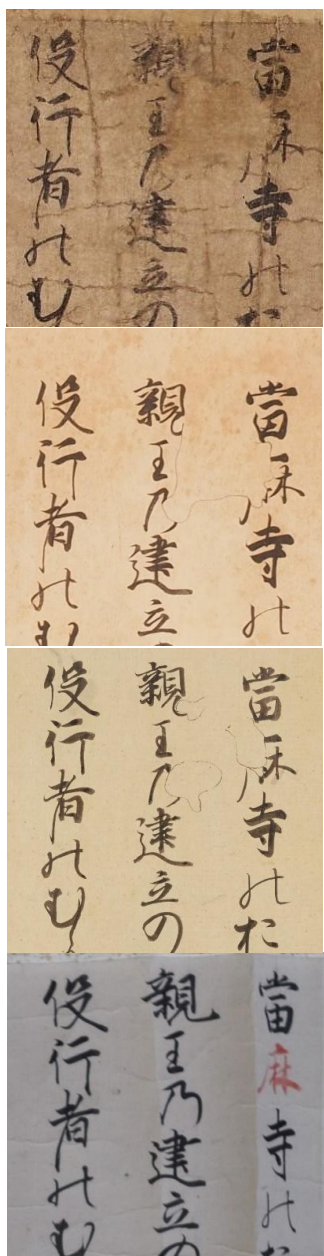 當麻寺の
親王乃建立の
役行者のむ
當麻寺の
親王乃建立
役行者のむ
當麻寺の
親王乃建立の
役行者のむ
當麻寺の
親王乃建立の
役行者のむ